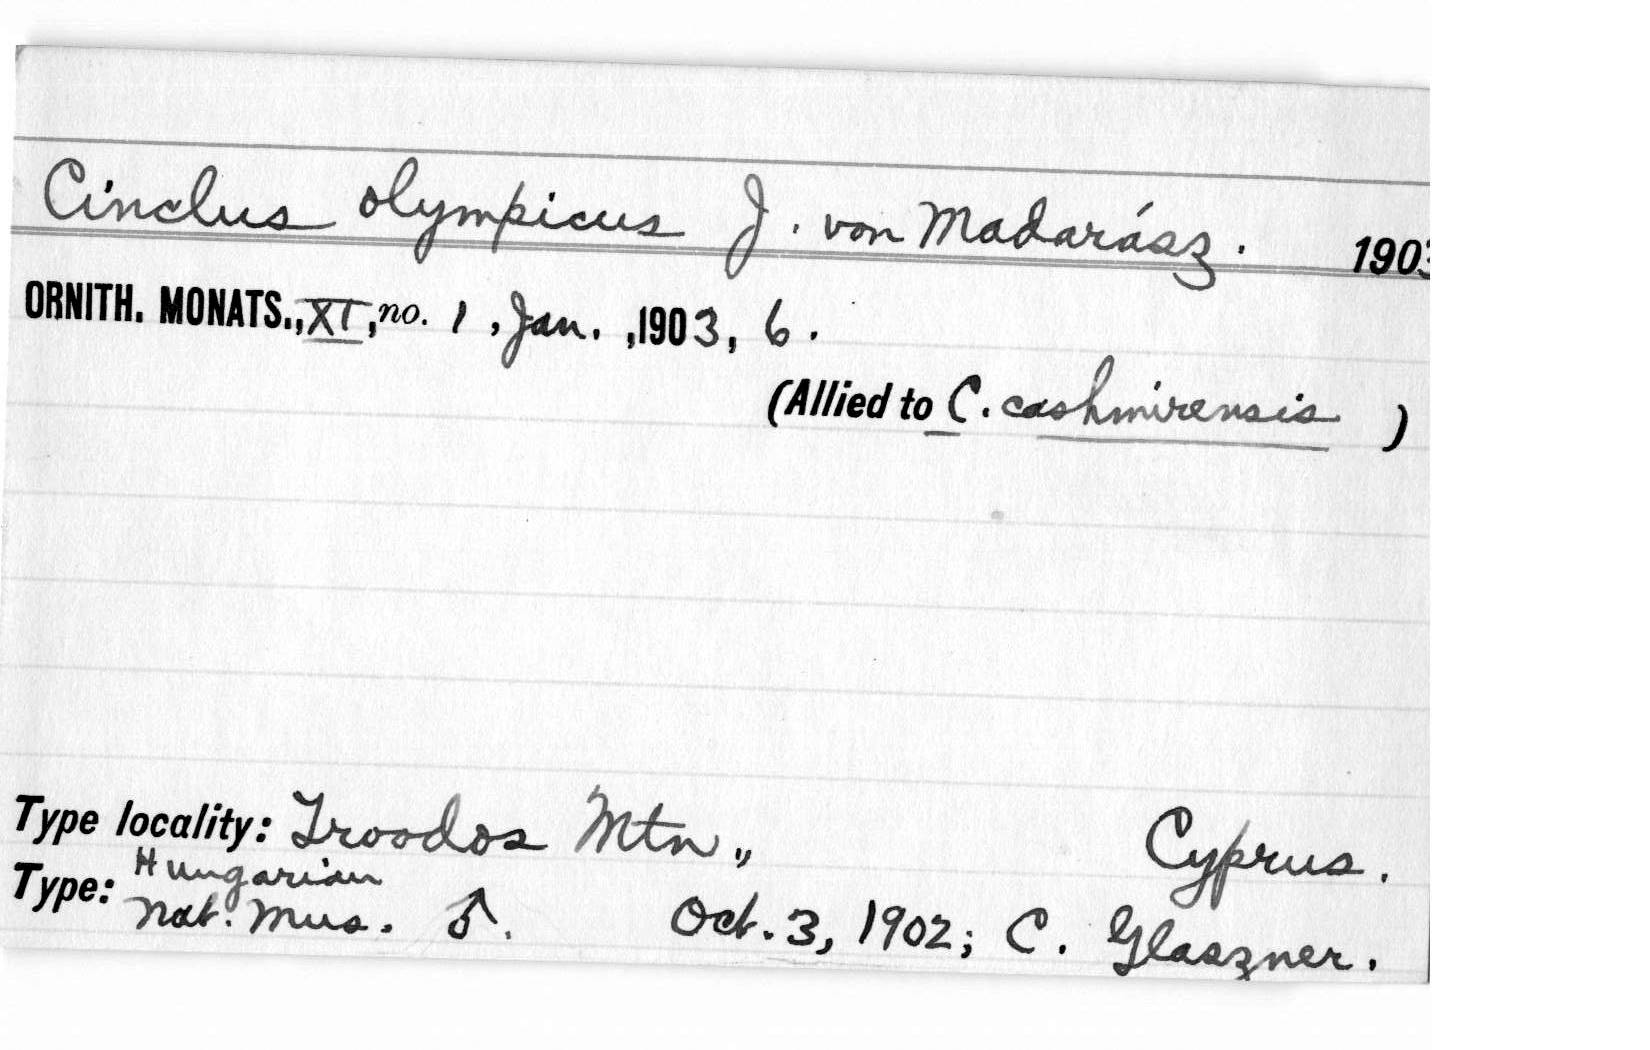 Cinclus olympicus J. von Madarász. 1903
ORNITH. MONATS., XI, no. 1, Jan., 1903, 6.
(Allied to C. cashmirensis )
Type locality: Troodos Mtn,, Cyprus.
Type: Hungarian
Nat. Mus. ♂. Oct. 3, 1902; C. Glaszner.